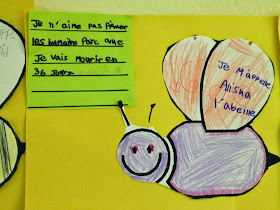 Je n'aime pas Piquer
les humains Parc que
Je vais Mourir en
36 Jours
Je M'appelle
Alisha
l'abeille